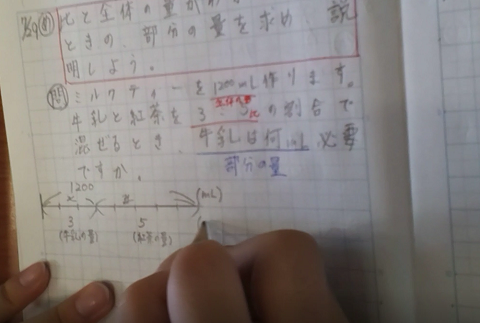 比と全体の量が
ときの、部分の量を求め、説
明しよう。
問 ミルクティーを1200mL作ります。
全体の量
牛乳と紅茶を3:5の割合で
混ぜるとき、牛乳は何mL必要
ですか。
部分の量
1200
x
(mL)
3 5
(牛乳の量) (紅茶の量)